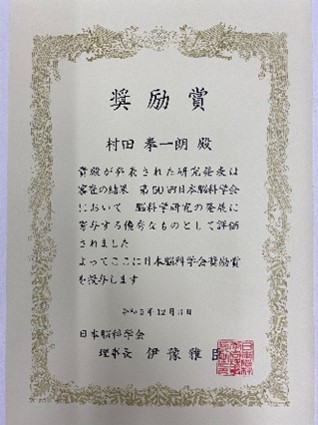 奨励賞
村田 拳一朗 殿
貴殿が発表された研究発表は
審査の結果 第50回日本脳科学会
において 脳科学研究の発展に
寄与する優秀なものとして評価
されました
よってここに日本脳科学会奨励賞
を授与します
12月
日本脳科学会
理事長 伊豫雅臣